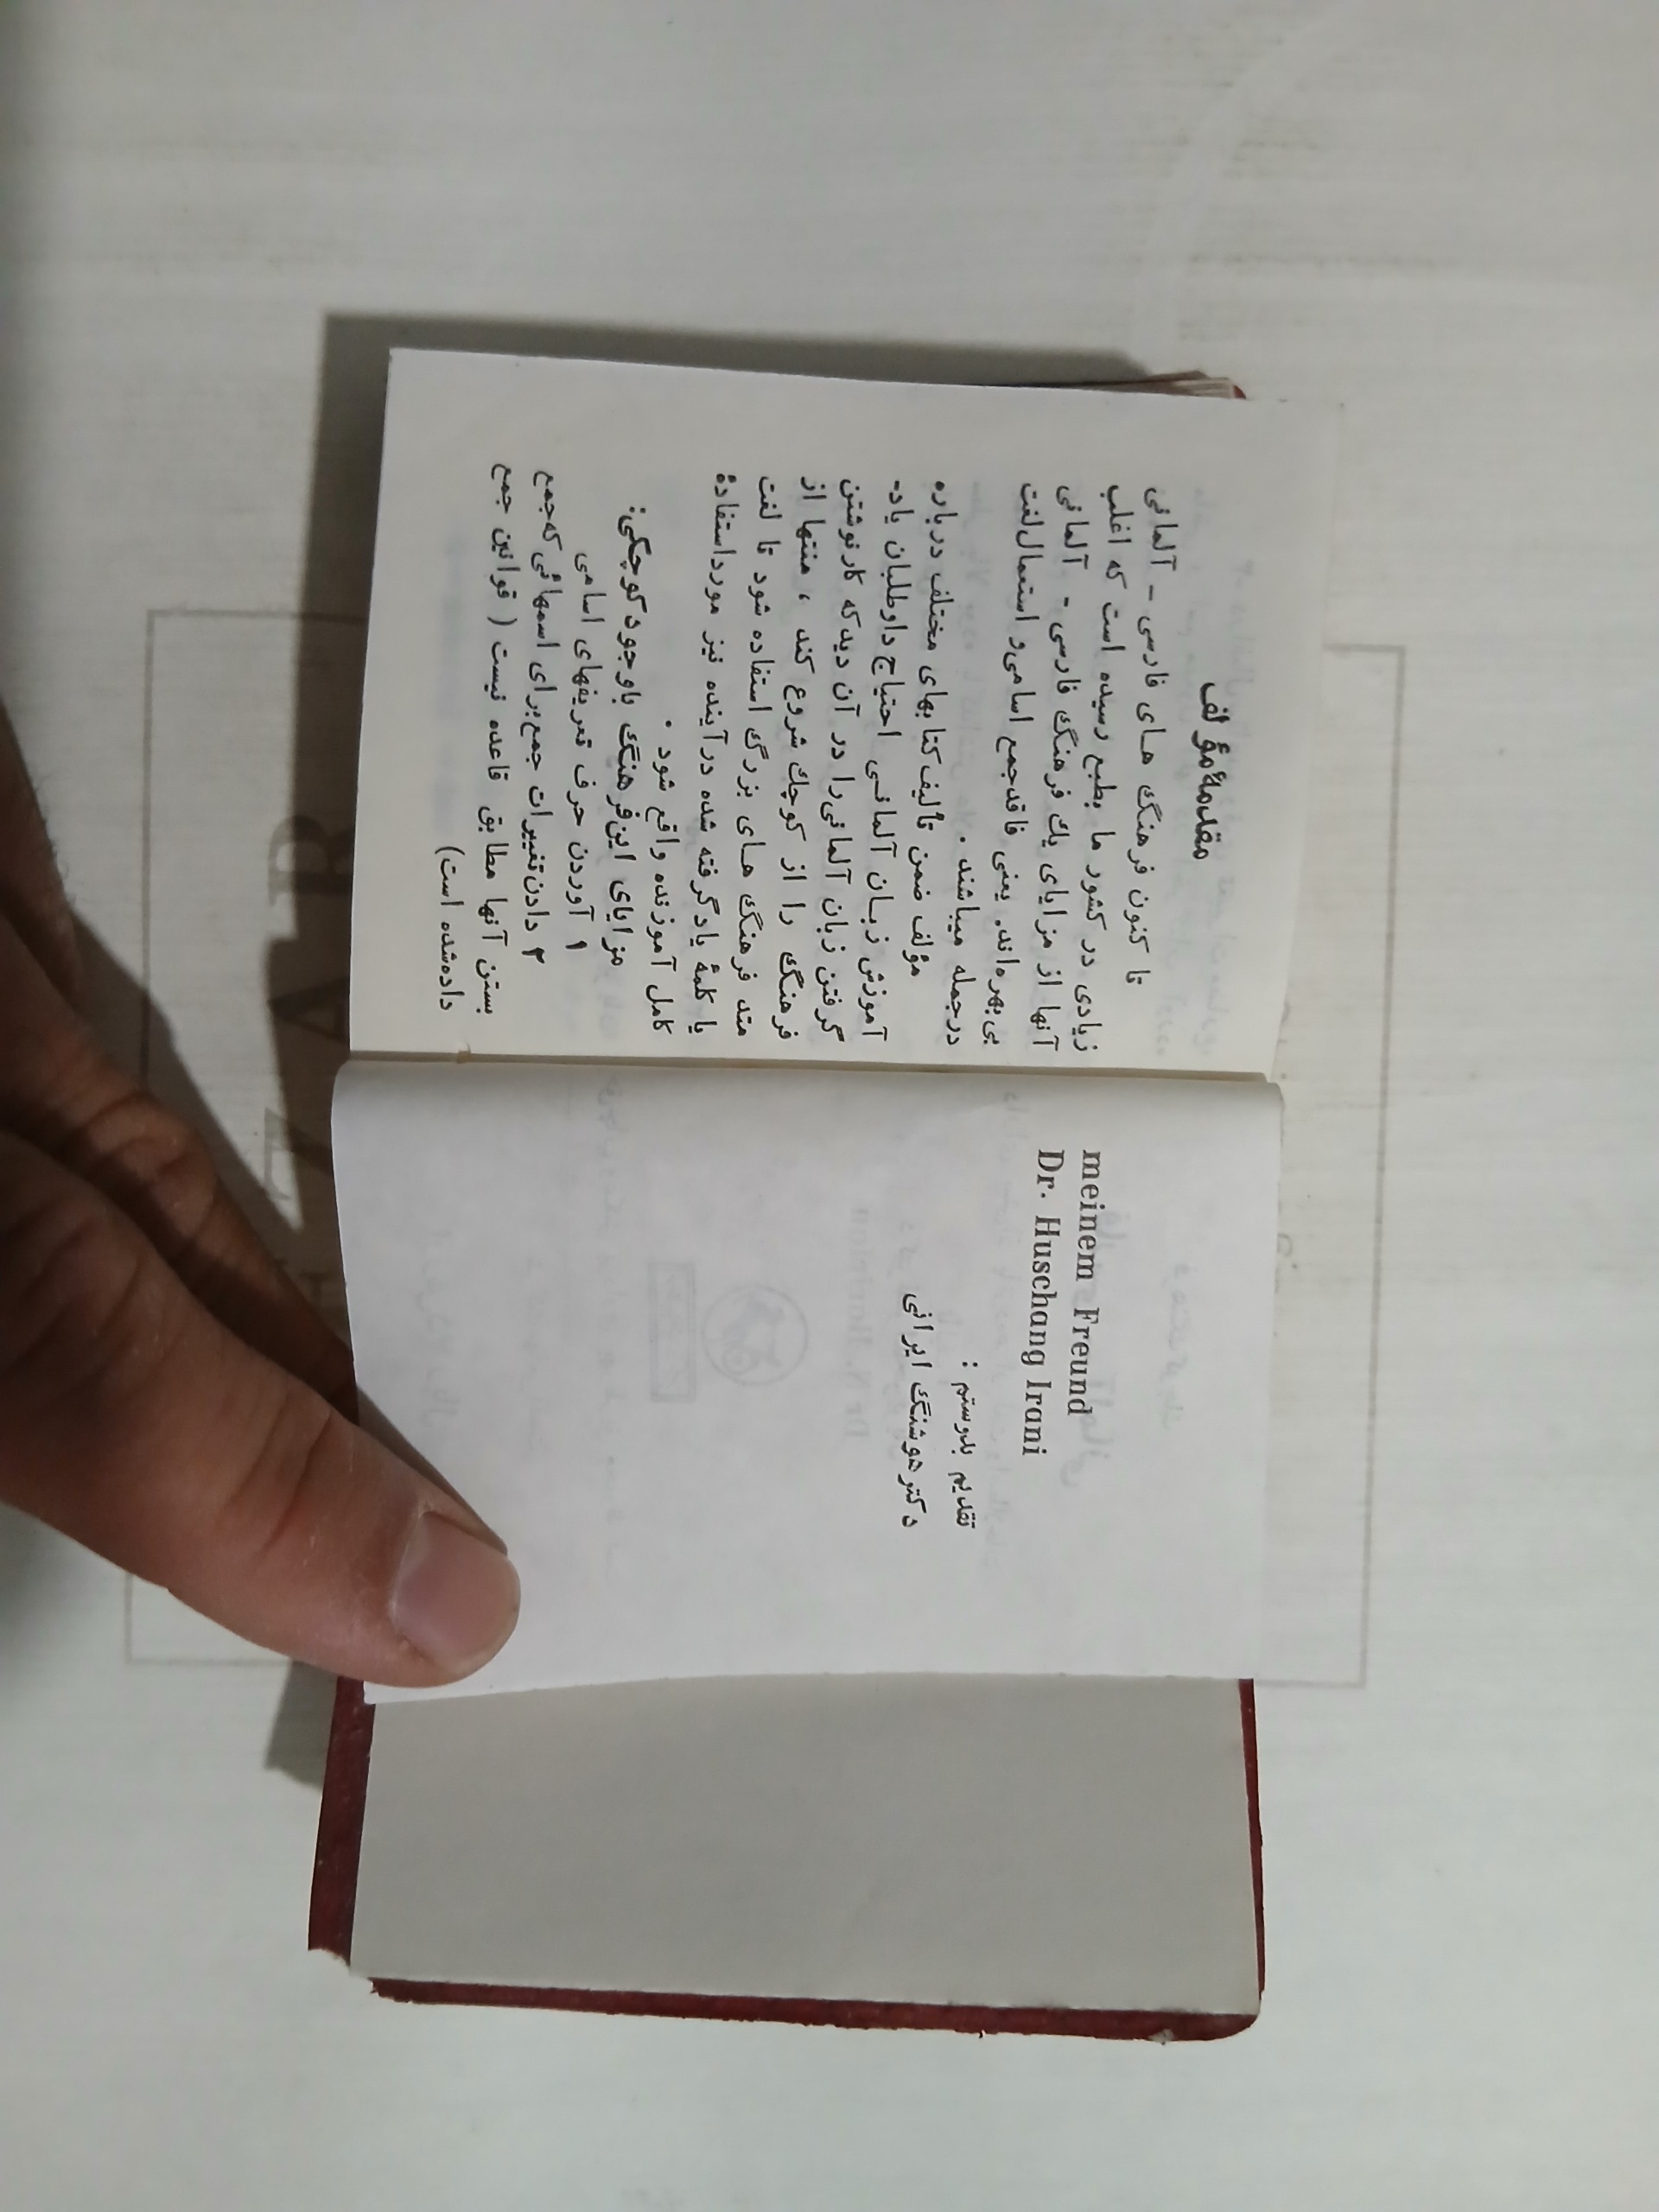 meinem Freund
Dr. Huschang Irani
تقدیم بدوستم :
دکتر هوشنگ ایرانی
مقدمهٔ مؤلف
تا کنون فرهنگ های فارسی - آلمانی
زیادی در کشور ما بطبع رسیده است که اغلب
آنها از مزایای یك فرهنگ فارسی - آلمانی
بی‌بهره‌اند. یعنی فاقد جمع اسامی و استعمال لغت
در جمله میباشند .
مؤلف ضمن تألیف کتابهای مختلف درباره
آموزش زبان آلمانی احتیاج داوطلبان یاد-
گرفتن زبان آلمانی را در آن دید که کار نوشتن
فرهنگ را از کوچك شروع کند ، منتها از
متد فرهنگ های بزرگ استفاده شود تا لغت
یا کلمهٔ یاد گرفته شده در آینده نیز مورد استفادهٔ
کامل آموزنده واقع شود .
مزایای این فرهنگ باوجود کوچکی:
۱ آوردن حرف تعریفهای اسامی
۲ دادن تغییرات جمع برای اسمهائی که جمع
بستن آنها مطابق قاعده نیست ( قوانین جمع
داده شده است)